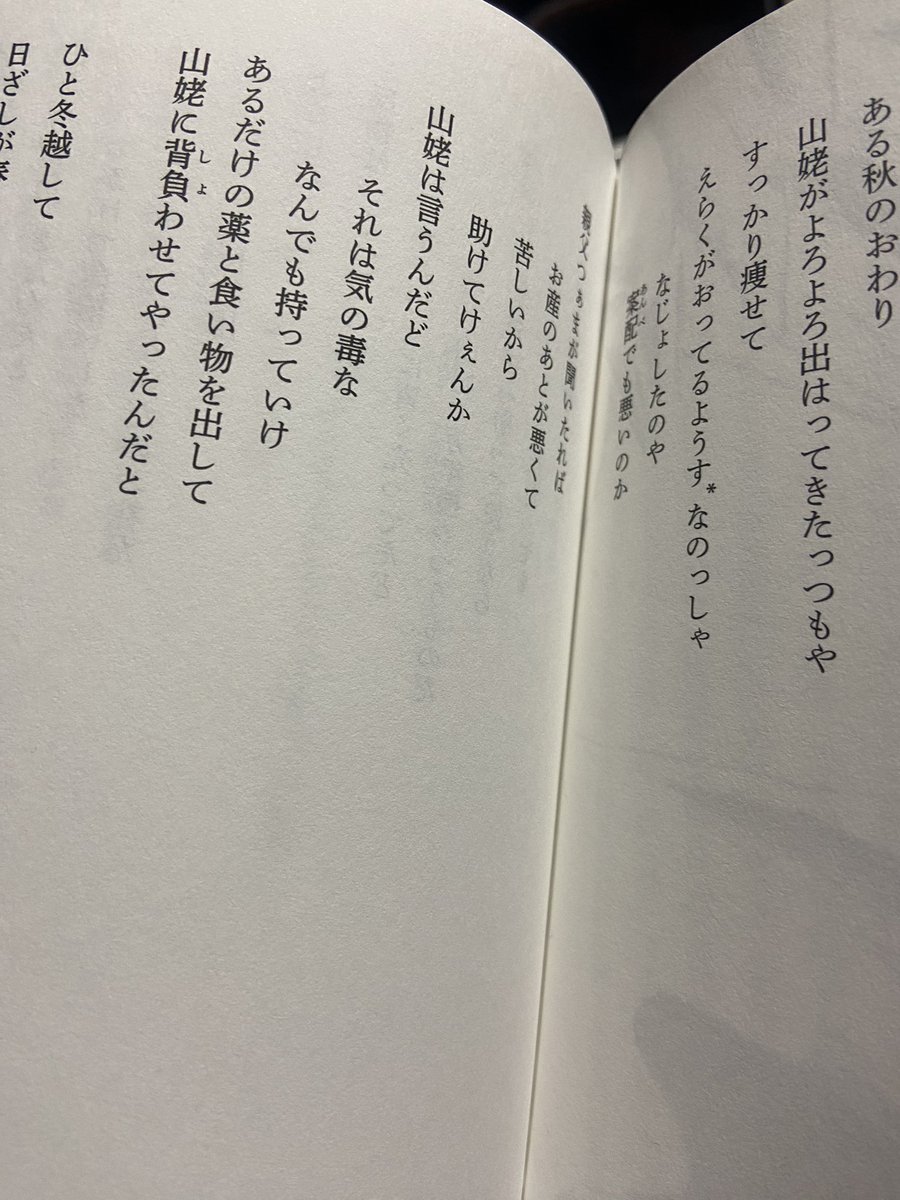 ある秋のおわり
山姥がよろよろ出はってきたっつもや
すっかり痩せて
えらくがおってるようす*なのっしゃ
なじょしたのや
案配でも悪いのか
あんべ
親父つぁまが聞いたれば
お産のあとが悪くて
苦しいから
助けてけぇんか
山姥は言うんだど
それは気の毒な
なんでも持っていけ
あるだけの薬と食い物を出して
山姥に背負わせてやったんだと
しょ
ひと冬越して
日ざしが